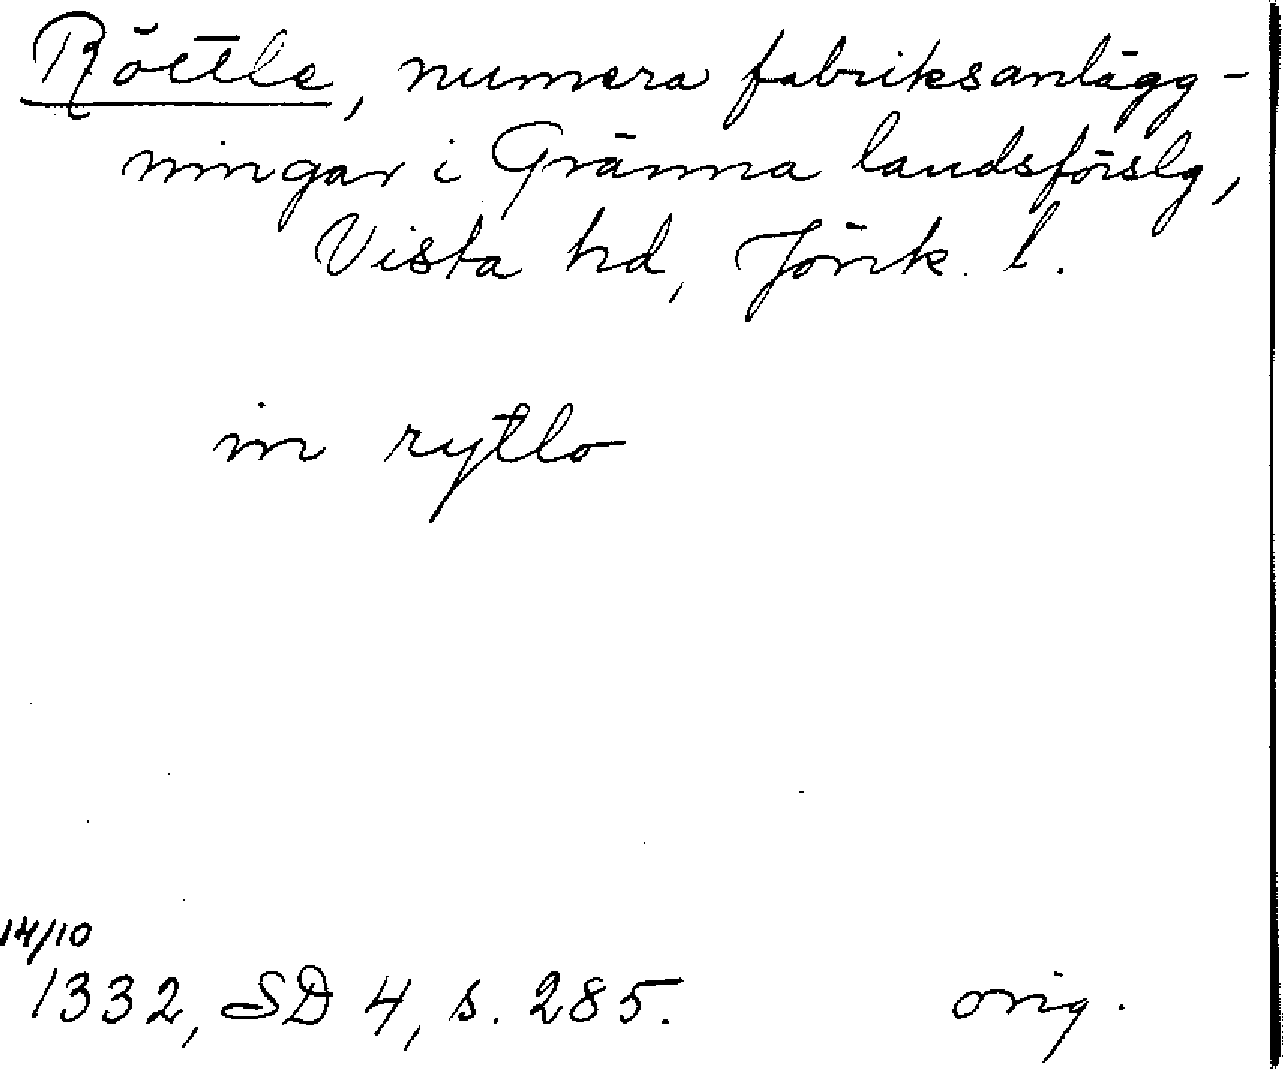 Röttle, numera fabriksanlägg-
ningar i Gränna landsförslg,
Vista hd, Jönk. l.
in rytlo
14/10
1332, SD 4, s. 285. orig.